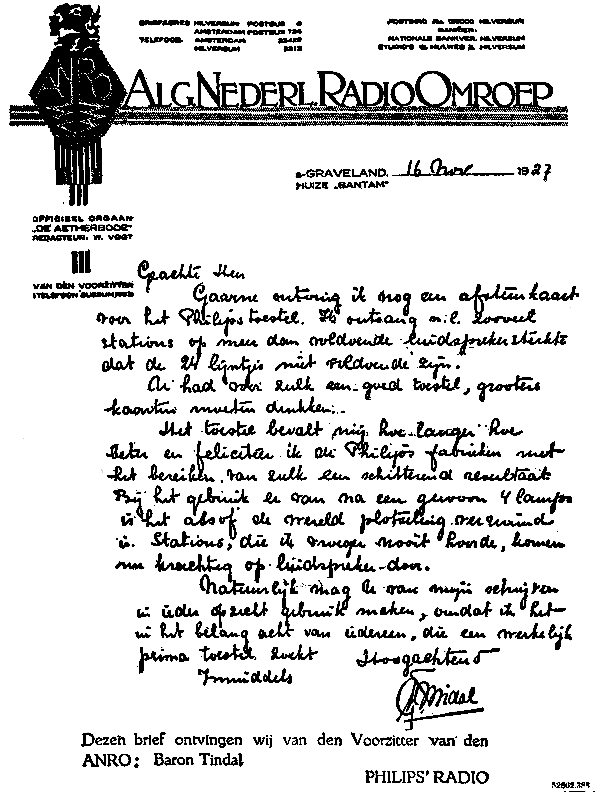 BRIEFADRES HILVERSUM POSTBUS 8
AMSTERDAM POSTBUS
TELEFOON. AMSTERDAM
HILVERSUM
POSTGIRO HILVERSUM
BANKIER:
NATIONALE BANKVER. HILVERSUM
STUDIO'S HILVERSUM
ANRO
ALG. NEDERL. RADIO OMROEP
'S-GRAVELAND. 16 Nov 1927
HUIZE „BANTAM”
OFFICIEEL ORGAAN
„DE AETHERBODE”
REDACTEUR: W. VOGT
VAN DEN VOORZITTER
(TELEFOON BUSSUM
Geachte Heer
Gaarne ontving ik nog een afstemkaart
voor het Philipstoestel. Ik ontvang n.l. zooveel
stations op meer dan voldoende luidsprekersterkte
dat de 24 lijntjes niet voldoende zijn.
U had voor zulk een goed toestel, grootere
kaarten moeten drukken.
Het toestel bevalt mij hoe langer hoe
beter en feliciteer ik de Philips fabrieken met
het bereiken van zulk een schitterend resultaat
Bij het gebruik er van na een gewoon 4 lamps
is het alsof de wereld plotseling verruimd
is. Stations, die ik vroeger nooit hoorde, komen
nu krachtig op luidspreker door.
Natuurlijk mag U van mijn schrijven
in ieder opzicht gebruik maken, omdat ik het
in het belang acht van iedereen, die een werkelijk
prima toestel zoekt
Inmiddels Hoogachtend
Tindal
Dezen brief ontvingen wij van den Voorzitter van den
ANRO: Baron Tindal
PHILIPS' RADIO